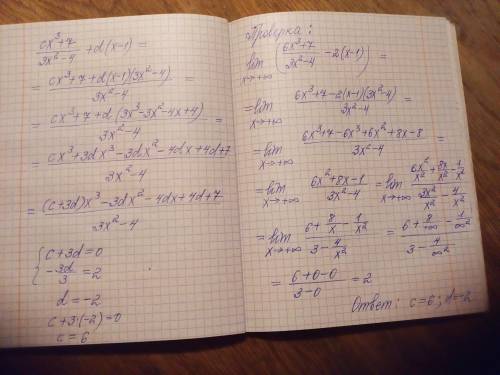 (cx³+7)/(3x²-4) + d(x-1) =
= (cx³+7+d(x-1)(3x²-4))/(3x²-4) =
= (cx³+7+d(3x³-3x²-4x+4))/(3x²-4) =
= (cx³+3dx³-3dx²-4dx+4d+7)/(3x²-4)
= ((c+3d)x³-3dx²-4dx+4d+7)/(3x²-4)
{ c+3d=0
-3d/3 = 2
d=-2
c+3·(-2)=0
c=6
Проверка:
lim x→+∞ ((6x³+7)/(3x²-4) - 2(x-1)) =
= lim x→+∞ (6x³+7-2(x-1)(3x²-4))/(3x²-4) =
= lim x→+∞ (6x³+7-6x³+6x²+8x-8)/(3x²-4) =
= lim x→+∞ (6x²+8x-1)/(3x²-4) = lim x→+∞ (6x²/x²+8x/x²-1/x²)/(3x²/x²-4/x²)
= lim x→+∞ (6+8/x-1/x²)/(3-4/x²) = (6+8/∞-1/∞²)/(3-4/∞²) =
= (6+0-0)/(3-0) = 2
Ответ: c=6; d=-2